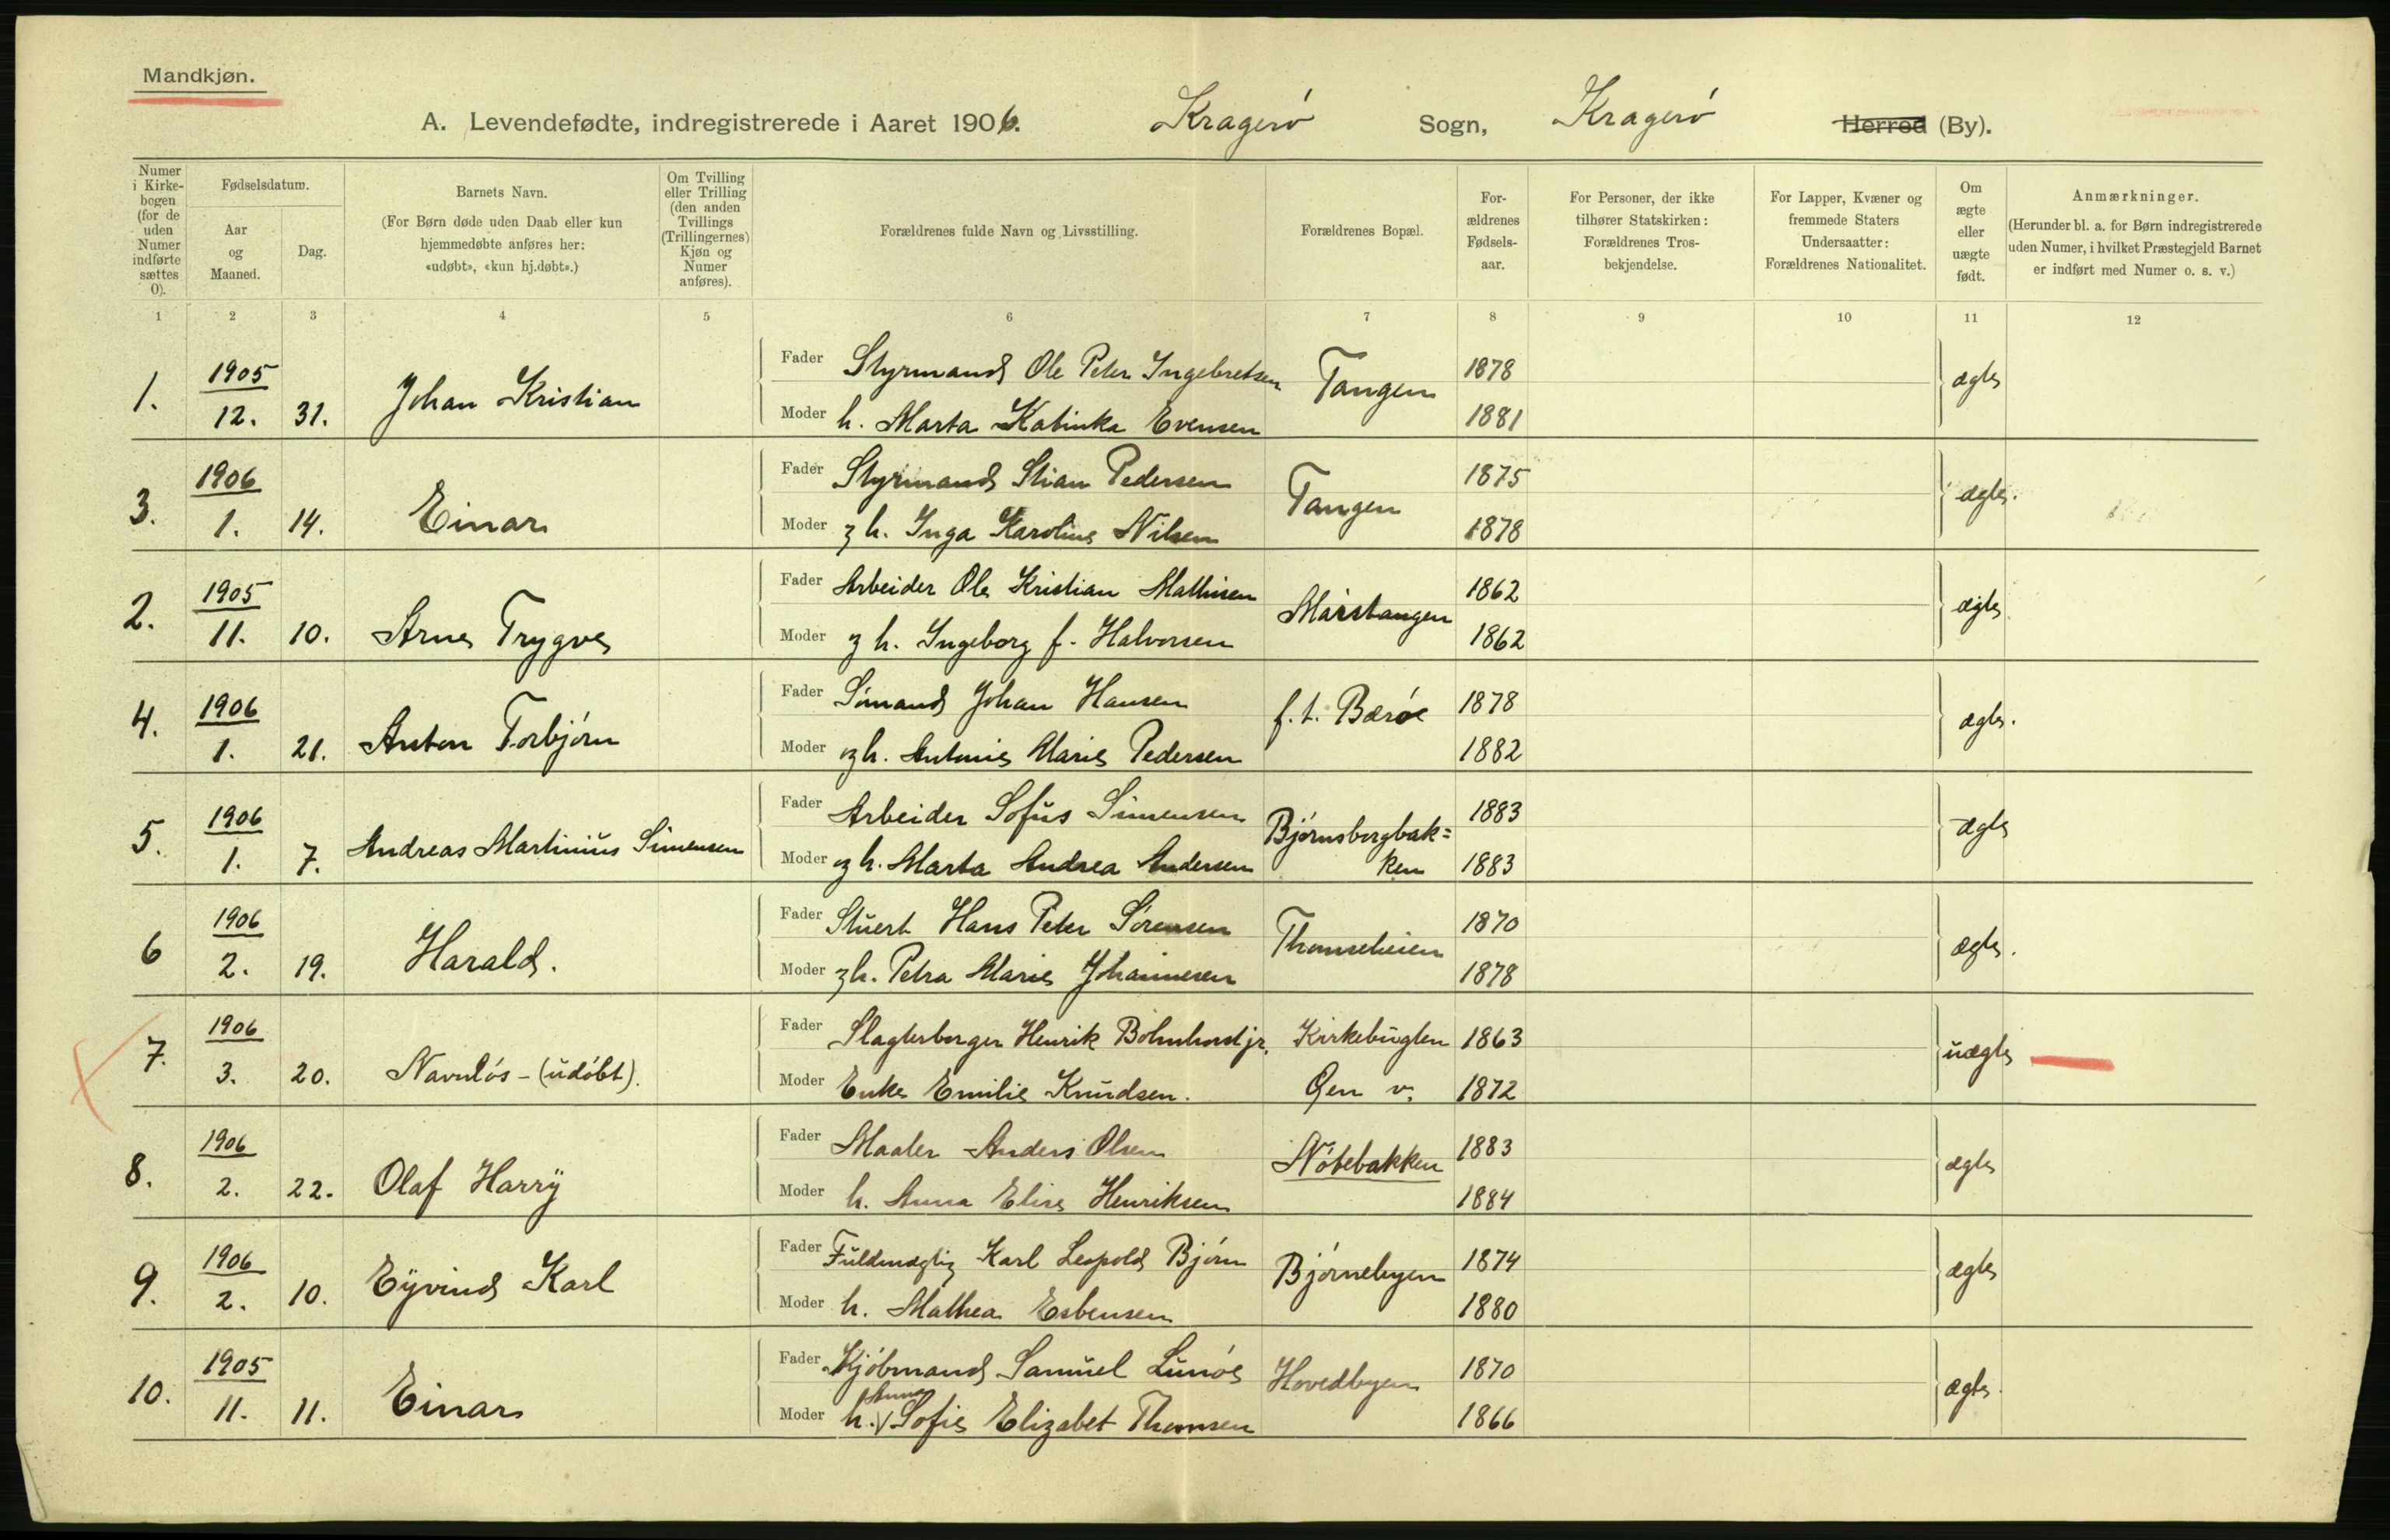 Mandkjøn.
A. Levendefødte, indregistrerede i Aaret 1906. Kragerø Sogn, Kragerø Herred (By).
Numer i Kirkebogen (for de uden Numer indførte sættes 0).
Fødselsdatum.
Aar og Maaned.
Dag.
Barnets Navn.
(For Børn døde uden Daab eller kun hjemmedøbte anføres her: «udøbt», «kun hj.døbt».)
Om Tvilling eller Trilling (den anden Tvillings (Trillingernes) Kjøn og Numer anføres).
Forældrenes fulde Navn og Livsstilling.
Forældrenes Bopæl.
For-ældrenes Fødsels-aar.
For Personer, der ikke tilhører Statskirken: Forældrenes Tros-bekjendelse.
For Lapper, Kvæner og fremmede Staters Undersaatter: Forældrenes Nationalitet.
Om ægte eller uægte født.
Anmærkninger.
(Herunder bl. a. for Børn indregistrerede uden Numer, i hvilket Præstegjeld Barnet er indført med Numer o. s. v.)
1 2 3 4 5 6 7 8 9 10 11 12
1. 1905 12. 31. Johan Kristian Fader Styrmand Ole Peter Ingebretsen Tangen 1878 ægte
Moder h. Marta Katinka Evensen 1881
3. 1906 1. 14. Einar Fader Styrmand Stian Pedersen Tangen 1875 ægte.
Moder og h. Inga Karoline Nilsen 1878
2. 1905 11. 10. Arne Trygve Fader Arbeider Ole Kristian Mathisen Maistangen 1862 ægte
Moder og h. Ingeborg f. Halvorsen 1862
4. 1906 1. 21. Anton Torbjørn Fader Sømand Johan Hansen f. t. Bærøe 1878 ægte.
Moder og h. Antonie Marie Pedersen 1882
5. 1906 1. 7. Andreas Martinius Simensen Fader Arbeider Sofus Simensen Bjørnsbergbak= 1883 ægte
Moder og h. Marta Andrea Andersen ken 1883
6 1906 2. 19. Harald. Fader Stuert Hans Peter Sørensen Thomseheien 1870 ægte.
Moder og h. Petra Marie Johannesen 1878
7. 1906 3. 20. Navnløs - (udøbt). Fader Slagterborger Henrik Bolmhorst jr. Kirkebugten 1863 uægte
Moder Enke Emilie Knudsen. Øen v. 1872
8. 1906 2. 22. Olaf Harry Fader Maaler Anders Olsen Nøtebakken 1883 ægte
Moder h. Anna Elise Henriksen 1884
9. 1906 2. 10. Eyvind Karl Fader Fuldmægtig Karl Leopold Bjørn Bjørnebyen 1874 ægte
Moder h. Mathea Esbensen 1880
10. 1905 11. 11. Einar Fader Kjøbmand Samuel Lunøe Hovedbyen 1870 ægte.
Moder h. Anna Sofie Elizabet Thomsen 1866